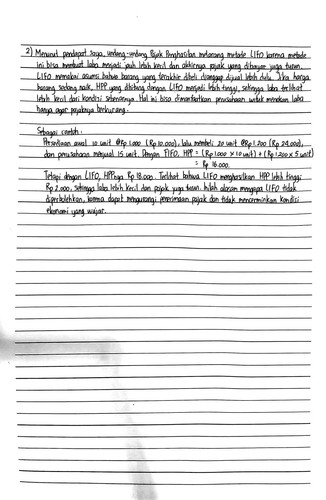 2) Menurut pendapat saya, undang-undang Pajak Penghasilan melarang metode LIFO karena metode
ini bisa membuat laba menjadi jauh lebih kecil dan akhirnya pajak yang dibayar juga turun.
LIFO memakai asumsi bahwa barang yang terakhir dibeli dianggap dijual lebih dulu. Jika harga
barang sedang naik, HPP yang dihitung dengan LIFO menjadi lebih tinggi, sehingga laba terlihat
lebih kecil dari kondisi sebenarnya. Hal ini bisa dimanfaatkan perusahaan untuk menekan laba
hanya agar pajaknya berkurang.
Sebagai contoh :
Persediaan awal 10 unit @Rp 1.000 (Rp 10.000), lalu membeli 20 unit @Rp 1.200 (Rp 24.000),
dan perusahaan menjual 15 unit. Dengan FIFO, HPP = (Rp 1.000 x 10 unit) + (Rp 1.200 x 5 unit)
= Rp 16.000.
Tetapi dengan LIFO, HPPnya Rp 18.000. Terlihat bahwa LIFO menghasilkan HPP lebih tinggi
Rp 2.000, sehingga laba lebih kecil dan pajak juga turun. Inilah alasan mengapa LIFO tidak
diperbolehkan, karena dapat mengurangi penerimaan pajak dan tidak mencerminkan kondisi
ekonomi yang wajar.